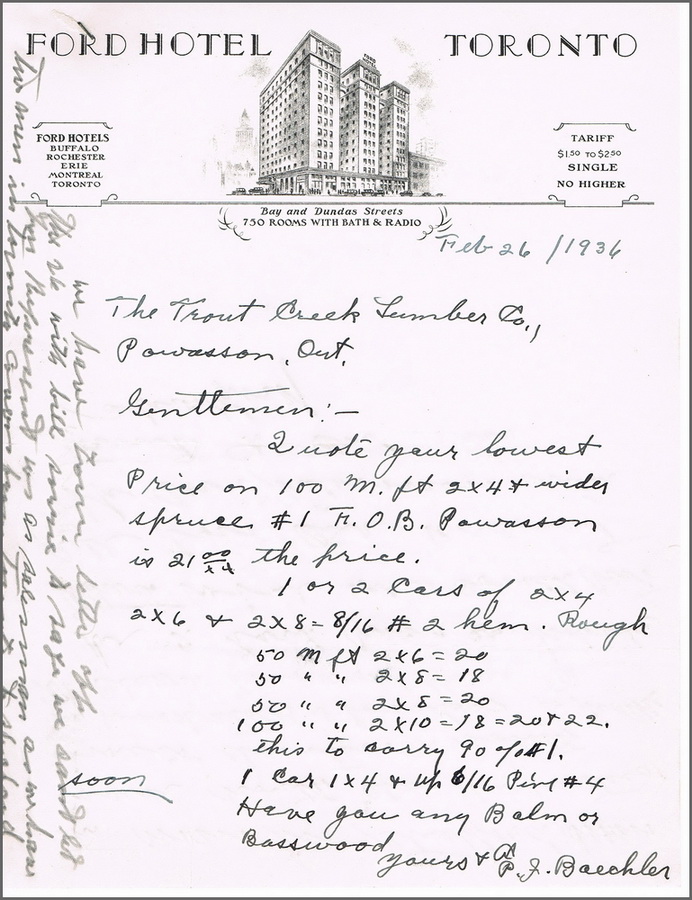 FORD HOTEL TORONTO
FORD HOTELS
BUFFALO
ROCHESTER
ERIE
MONTREAL
TORONTO
FORD
HOTEL
TARIFF
$1.50 TO $2.50
SINGLE
NO HIGHER
Bay and Dundas Streets
750 ROOMS WITH BATH & RADIO
Feb 26 /1936
The Trout Creek Lumber Co.,
Powasson, Ont.
Gentlemen:—
Quote your lowest
Price on 100 M. ft 2x4 & wider
spruce #1 F.O.B. Powasson
is 21 00/xx the price.
1 or 2 Cars of 2x4
2x6 & 2x8 = 8/16 # 2 hem. Rough
50 M ft 2x6 = 20
50 " " 2x8 = 18
50 " " 2x8 = 20
100 " " 2x10 = 18 = 20 & 22.
this to carry 90 % #1.
1 Car 1x4 & up 6/16 Pine #4
Have you any Balm or
Basswood
yours &
P. J. Baechler
soon
we have
with bill
we
us as salesman
two men in